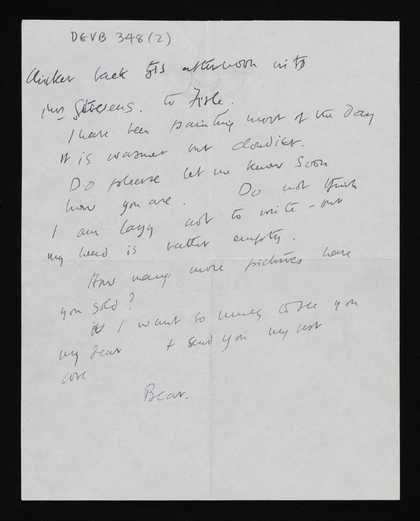 DEVB 348 (2)
back this afternoon with
Mrs Stevens. to
I have been painting most of the day
It is warmer but cloudier.
Do please let me know soon
how you are. Do not think
I am lazy not to write - but
my head is rather empty.
How many more pictures have
you sold?
I want so much to see you
my dear + send you my best
love
Bear.